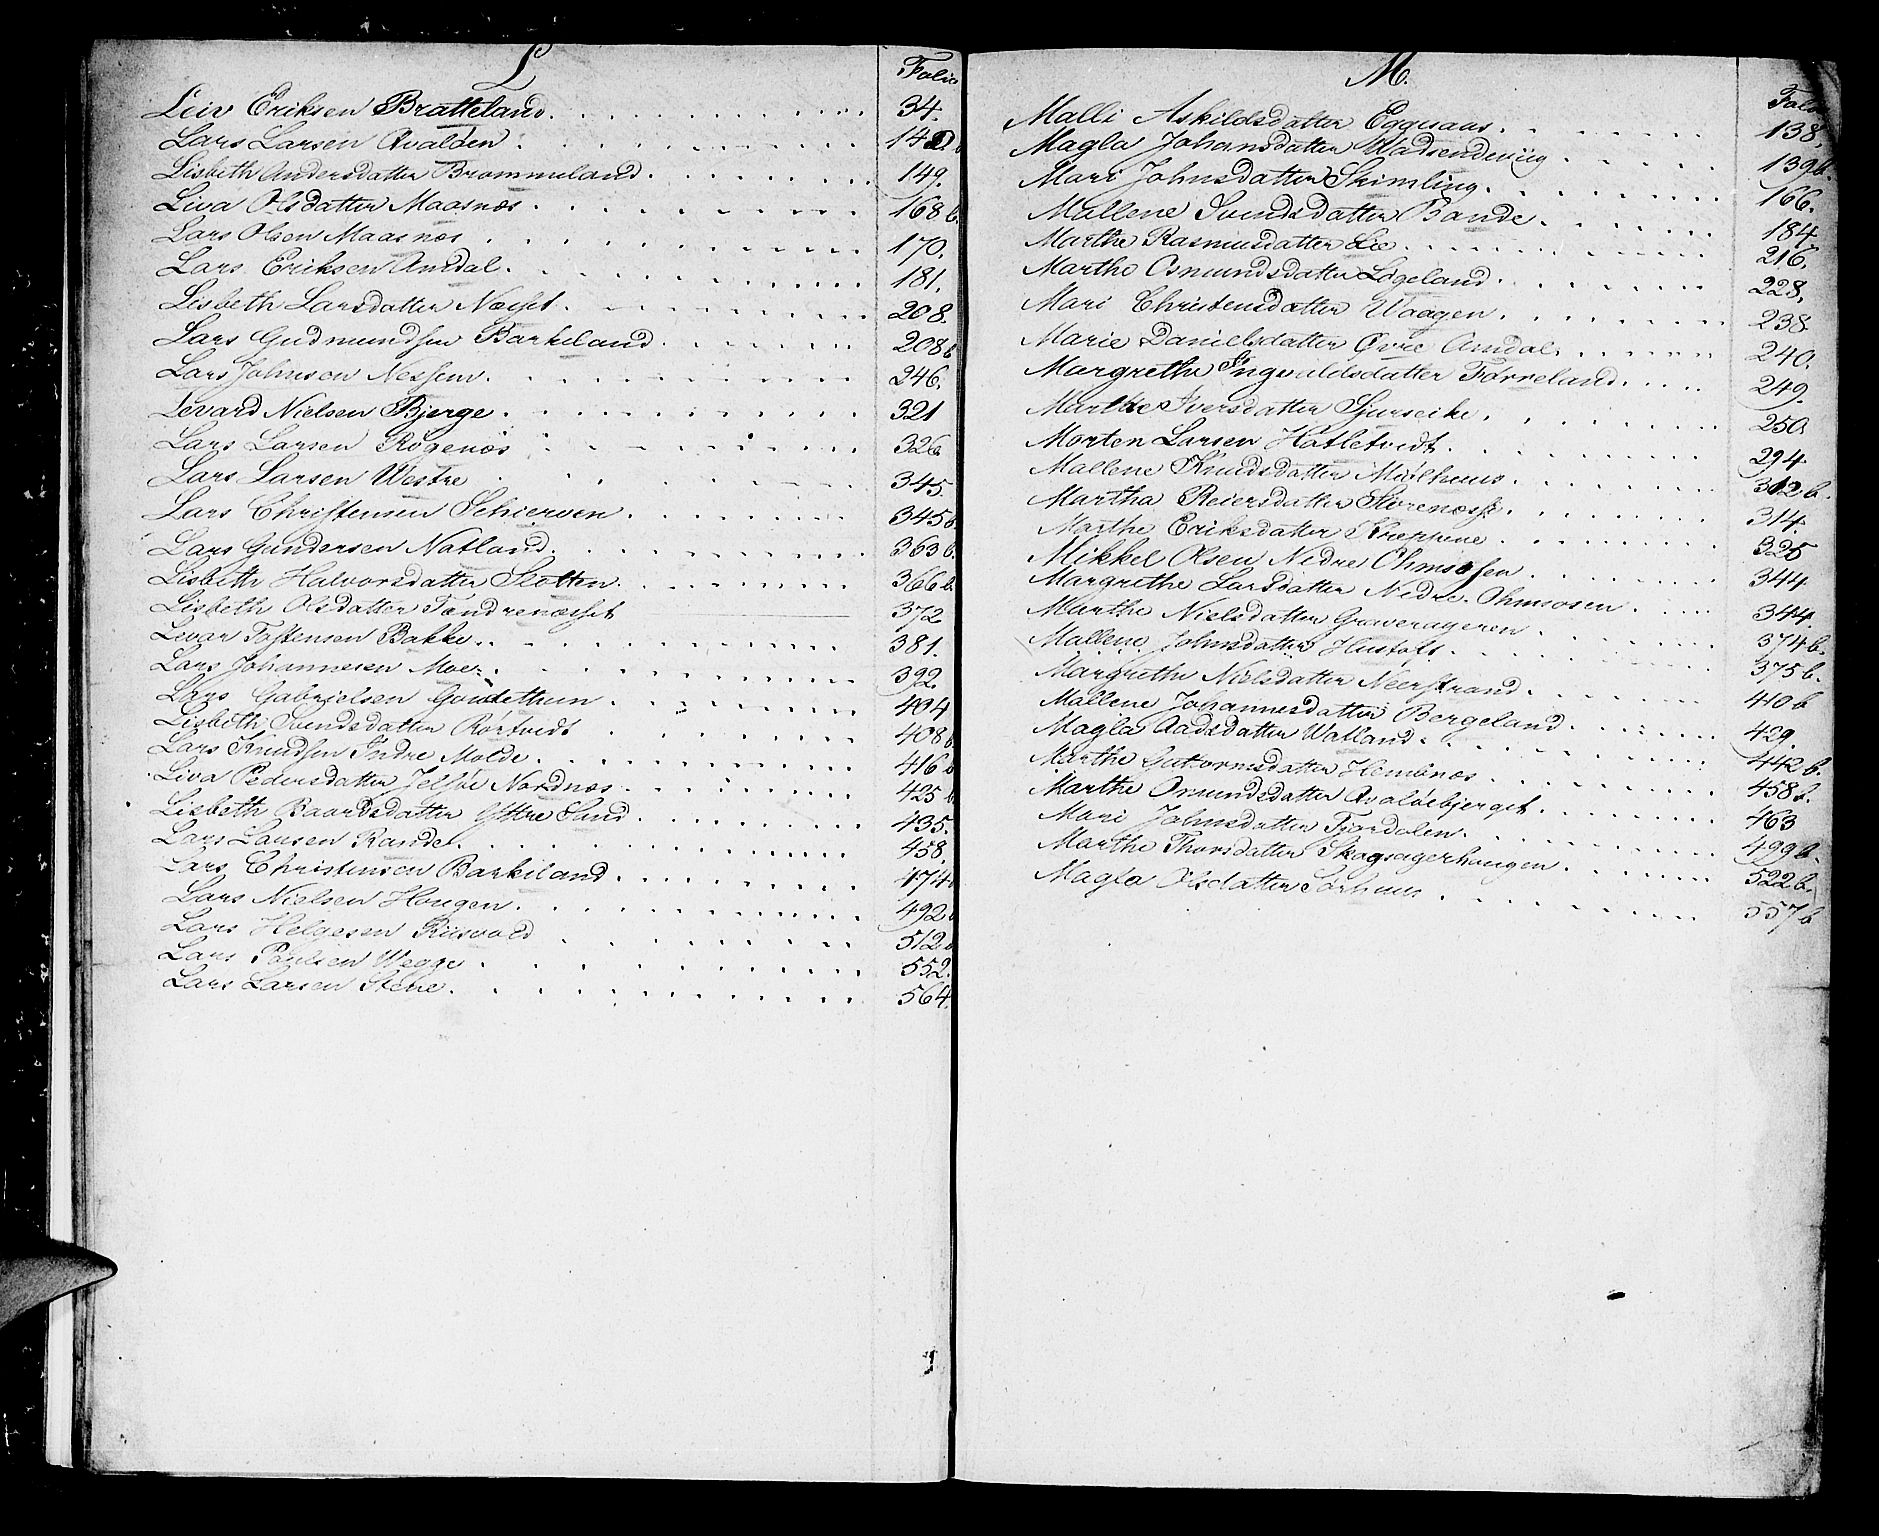 L
Folio
Leiv Eriksen Bratteland. 34.
Lars Larsen Qvalden 14
Lisbeth Andersdatter Brommeland. 149.
Liva Olsdatter Maasnæs. 168 b.
Lars Olsen Maasnæs 170.
Lars Eriksen Amdal. 181.
Lisbeth Larsdatter Næsset. 208.
Lars Gudmundsen Barkeland. 208 b
Lars Johnsen Nessem. 246.
Levard Nielsen Bjerge. 321
Lars Larsen Røgenøs 326
Lars Larsen Westre 345.
Lars Christensen Schierven. 345 b.
Lars Gundersen Natland. 363 b.
Lisbeth Halvorsdatter Slotten. 366 b.
Lisbeth Olsdatter Tøndrenæsset 372
Levar Tostensen Bakke. 381.
Lars Johannesen Moer. 392.
Lars Gabrielsen 404
Lisbeth Svendsdatter Rørtvedt 408 b.
Lars Knudsen Indre Molde. 416 b
Liva Pedersdatter Jelsøe Nordnæs. 425 b.
Lisbeth Baardsdatter Yttre Sand. 435.
Lars Larsen Rande. 458.
Lars Christensen Barkeland. 474.
Lars Nielsen Hougen. 492 b
Lars Helgesen Riisvold 512 b
Lars Poulsen Wegge. 552.
Lars Larsen Stene. 564.
M.
Folio
Malli Askildsdatter Eggesaas. 138.
Magla Johansdatter 139 b.
Mari Johnsdatter Skimling. 166.
Mallene Svendsdatter Bande. 184
Marthe Rasmusdatter Lie. 216.
Marthe Osmundsdatter Løgeland. 228.
Mari Christensdatter Waagen. 238.
Marie Danielsdatter Øvre Amdal. 240.
Margrethe Ingvaldsdatter Førreland. 249.
Marthe Iversdatter Sjurseike. 250.
Morten Larsen Hatletvedt. 294.
Mallene Knudsdatter Miølhuus. 312 b.
Martha Reiersdatter Storenæsse. 314.
Marthe Eriksdatter 325
Mikkel Olsen Nedre Ohmsosen. 344
Margrethe Larsdatter Nedre Ohmsosen. 344.
Marthe Nielsdatter Graverageren. 374 b.
Mallene Johnsdatter Hustoft. 375 b.
Margrethe Nielsdatter Neerstrand. 410 b
Mallene Johannesdatter Bergeland. 429.
Magla Aadsdatter Watland. 442 b.
Marthe Guttormsdatter Hembnæs. 458 b.
Marthe Osmundsdatter Qvaløebjerget. 463
Mari Johnsdatter Fjordalen. 499 b.
Marthe Thorsdatter Skogsagerhougen. 522 b.
Magla Olsdatter Sørhuus. 557 b